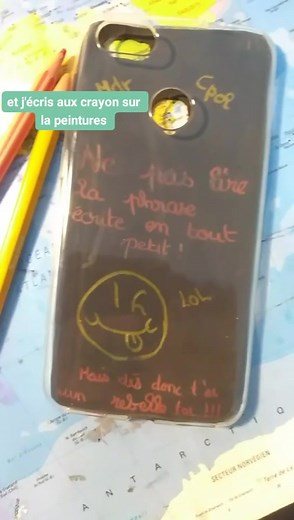 et j'écris aux crayon sur
la peintures
Mdr
Cool
Ne pas lire
la phrase
écrite en tout
petit !
LoL
Mais dis donc t'es
un rebelle toi !!!
ANTARCTI
SECTEUR NORVÉGIEN